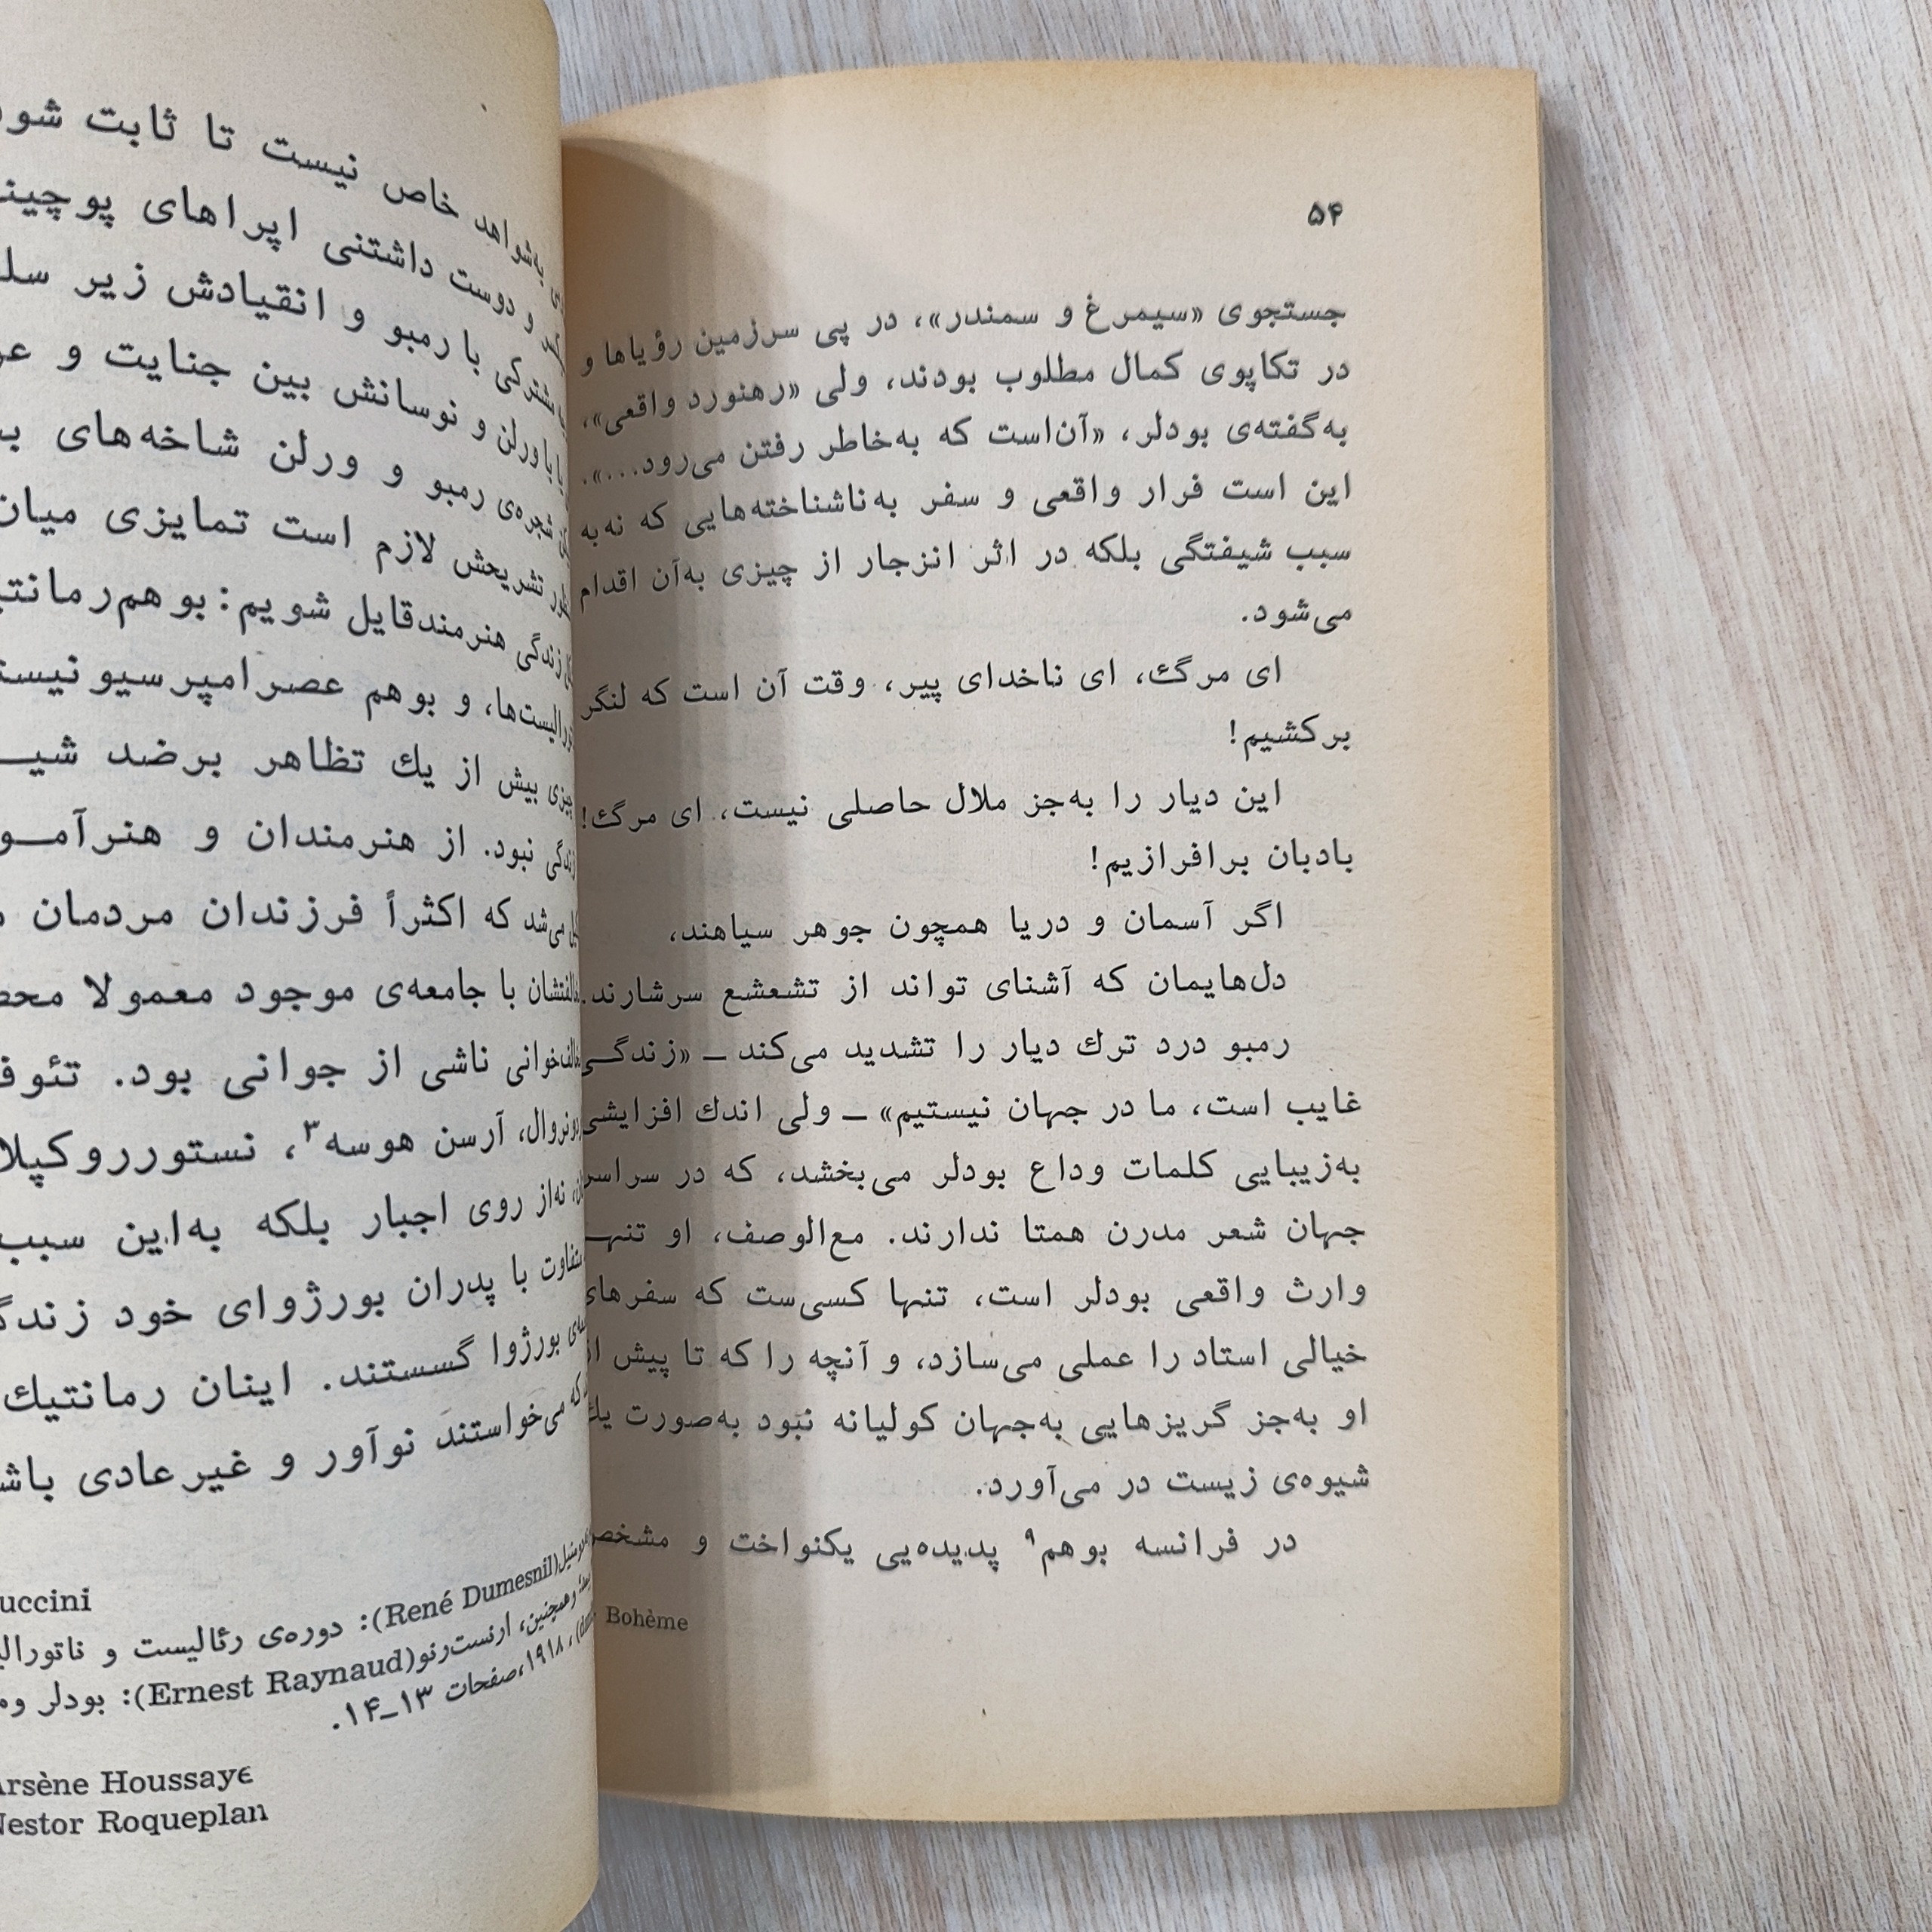 ۵۴
جستجوی «سیمرغ و سمندر»، در پی سرزمین رؤیاها و
در تکاپوی کمال مطلوب بودند، ولی «رهنورد واقعی»،
به‌گفته‌ی بودلر، «آن‌است که به‌خاطر رفتن می‌رود...».
این است فرار واقعی و سفر به‌ناشناخته‌هایی که نه‌به
سبب شیفتگی بلکه در اثر انزجار از چیزی به‌آن اقدام
می‌شود.
ای مرگ، ای ناخدای پیر، وقت آن است که لنگر
برکشیم!
این دیار را به‌جز ملال حاصلی نیست، ای مرگ!
بادبان برافرازیم!
اگر آسمان و دریا همچون جوهر سیاهند،
دل‌هایمان که آشنای تواند از تشعشع سرشارند.
رمبو درد ترك دیار را تشدید می‌کند ـ «زندگـی
غایب است، ما در جهان نیستیم» ـ ولی اندك افزایشی
به‌زیبایی کلمات وداع بودلر می‌بخشد، که در سراسر
جهان شعر مدرن همتا ندارند. مع‌الوصف، او تنهـ
وارث واقعی بودلر است، تنها کسی‌ست که سفرهای
خیالی استاد را عملی می‌سازد، و آنچه را که تا پیش از
او به‌جز گریزهایی به‌جهان کولیانه نبود به‌صورت یك
شیوه‌ی زیست در می‌آورد.
در فرانسه بوهم۹ پدیده‌یی یکنواخت و مشخص
Bohème
به‌شواهد خاص نیست تا ثابت شو
و دوست داشتنی اپراهای پوچینـ
مشترکی با رمبو و انقیادش زیر سلـ
با ورلن و نوسانش بین جنایت و عر
شجره‌ی رمبو و ورلن شاخه‌های بـ
تشریحش لازم است تمایزی میان
زندگی هنرمندقایل شویم: بوهم‌رمانتیـ
و بوهم عصرامپرسیونیستـ
چیزی بیش از یك تظاهر برضد شیـ
زندگی نبود. از هنرمندان و هنرآمـو
می‌شد که اکثراً فرزندان مردمان
با جامعه‌ی موجود معمولا محصـ
ناشی از جوانی بود. تئوفـ
آرسن هوسه۳، نستورروکپلا
نه‌از روی اجبار بلکه به‌این سبب
متفاوت با پدران بورژوای خود زندگـ
بورژوا گسستند. اینان رمانتیك
که می‌خواستند نوآور و غیرعادی باشـ
uccini
(René Dumesnil): دوره‌ی رئالیست و ناتورالیـ
وهمچنین، ارنست‌رنو(Ernest Raynaud): بودلر و
۱۹۱۸، صفحات ۱۳ـ۱۴.
Arsène Houssaye
Nestor Roqueplan